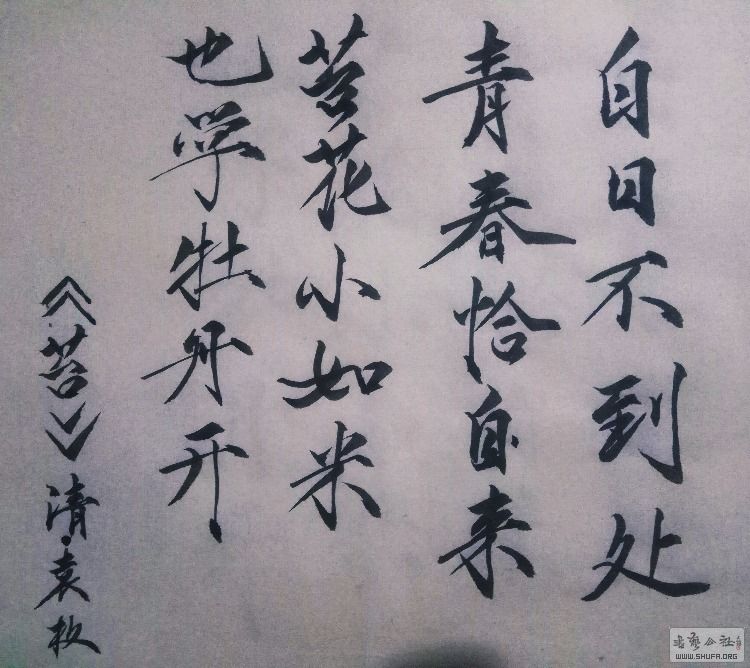 白日不到处
青春恰自来
苔花小如米
也学牡丹开
《苔》清·袁枚
书艺公社
WWW.SHUFA.ORG